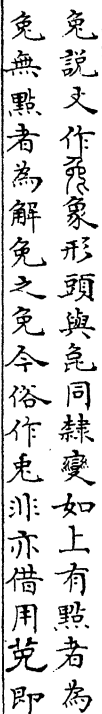 兔說文作象形頭與㲋同隸變如上有點者為
兔無點者為解免之免今俗作兎非亦借用菟即